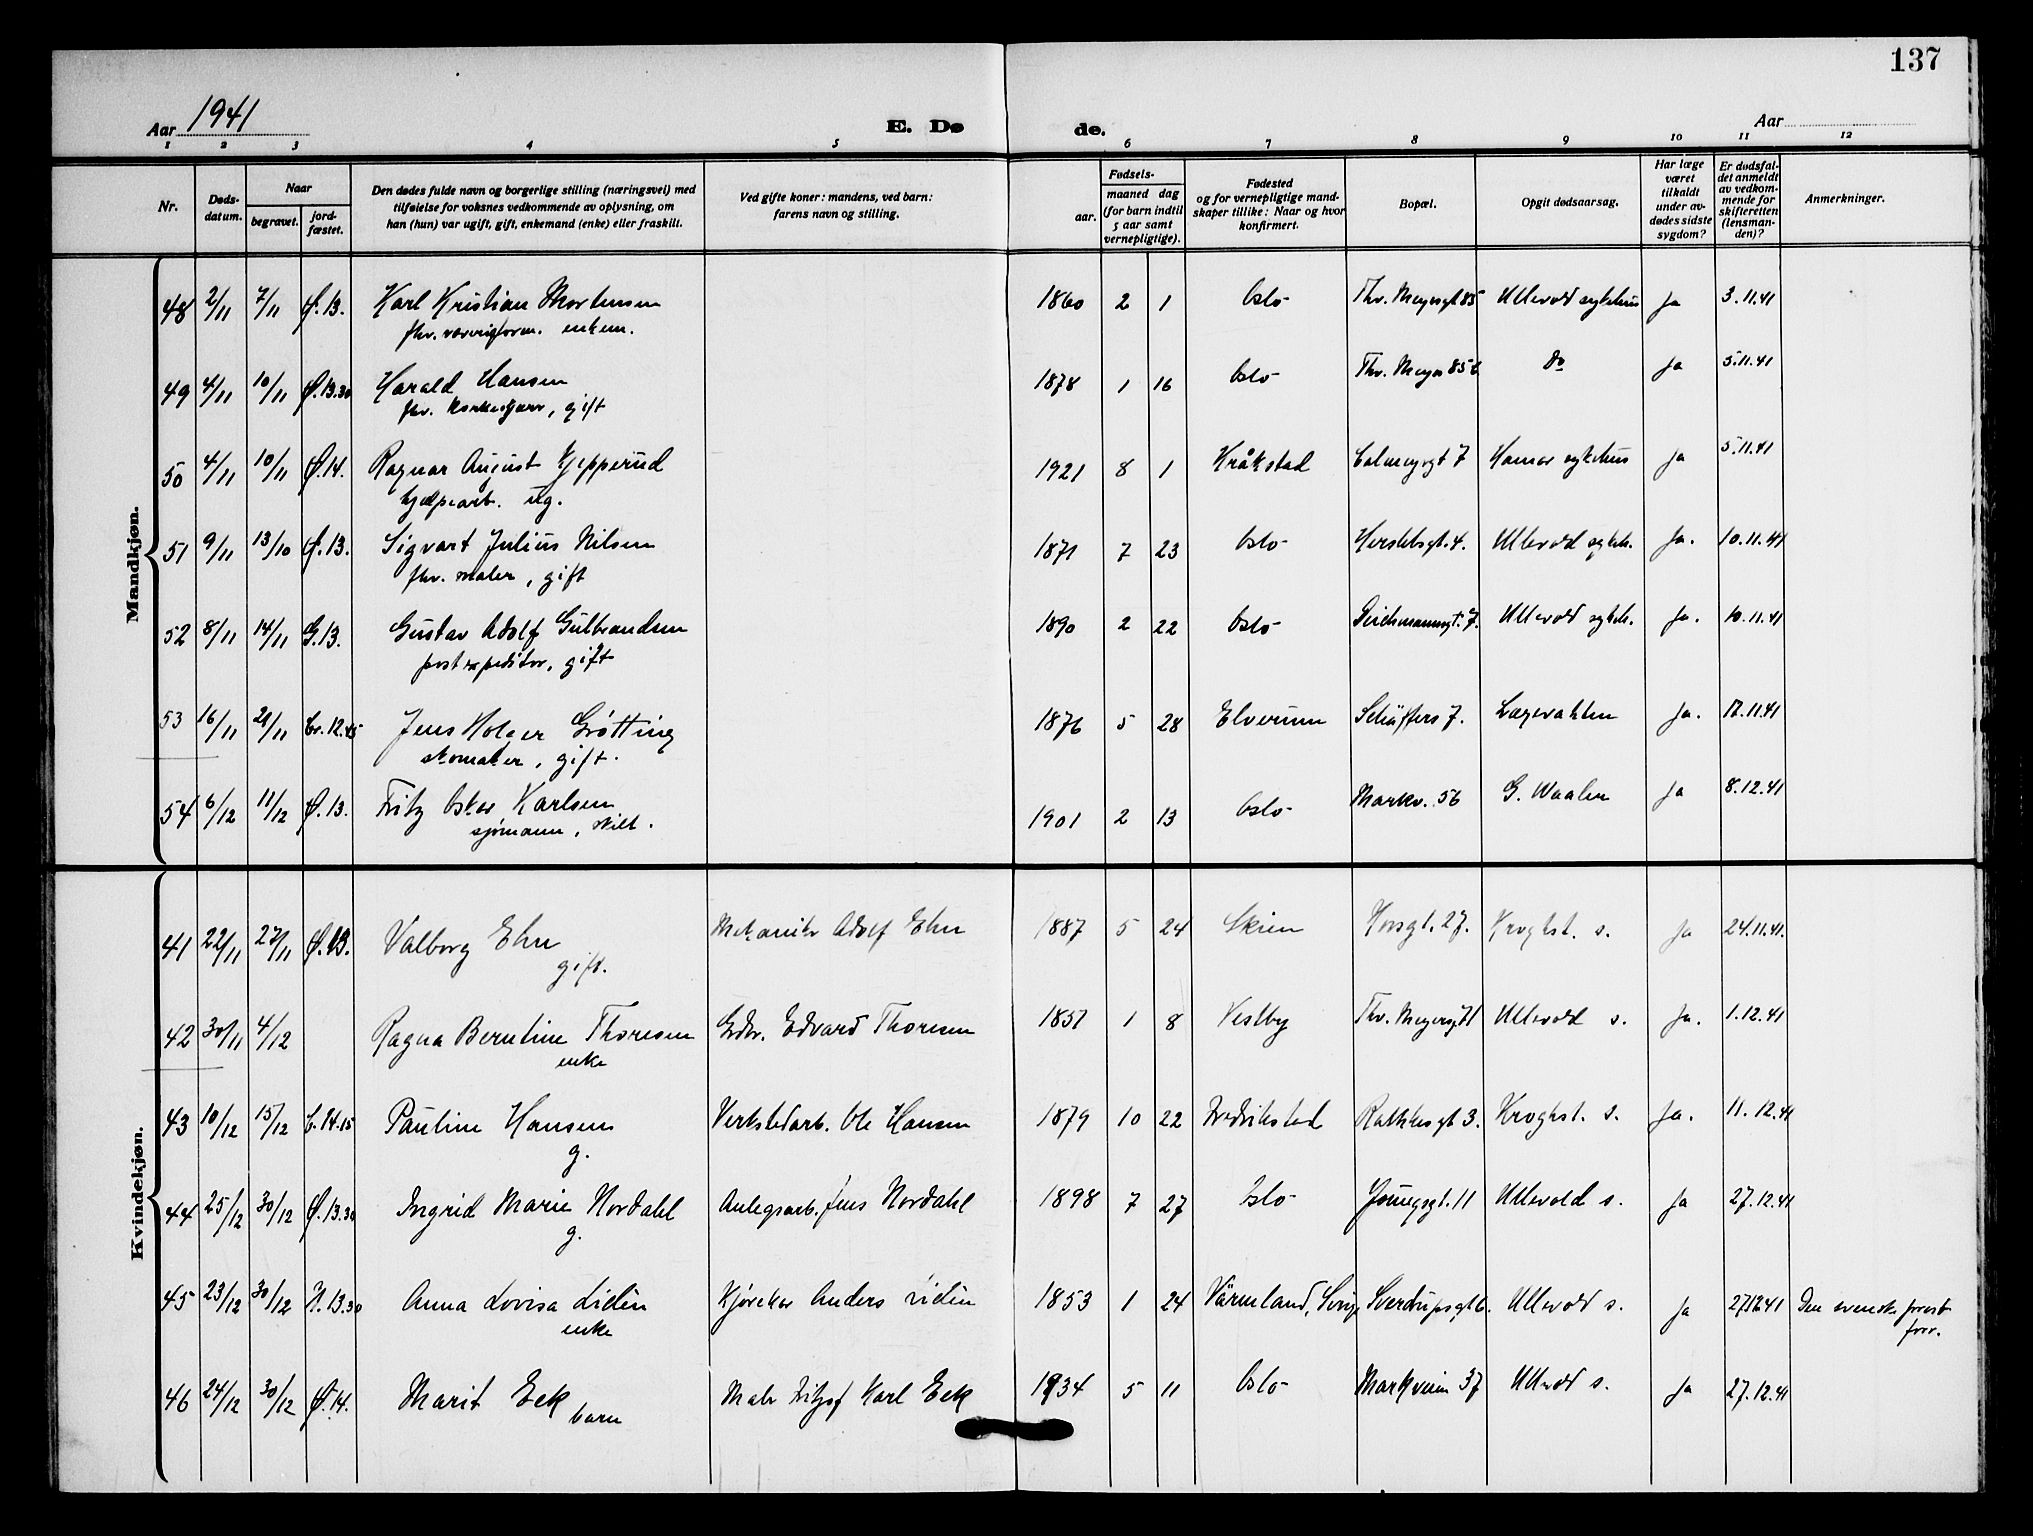 137
Aar 1941
E. Dø
de.
Aar
1 2 3 4 5 6 7 8 9 10 11 12
Nr.
Døds-
datum.
Naar
begravet.
jord-
fæstet.
Den dødes fulde navn og borgerlige stilling (næringsvei) med
tilføielse for voksnes vedkommende av oplysning, om
han (hun) var ugift, gift, enkemand (enke) eller fraskilt.
Ved gifte koner: mandens, ved barn:
farens navn og stilling.
Fødsels-
aar.
maaned dag
(for barn indtil
5 aar samt
vernepligtige).
Fødested
og for vernepligtige mand-
skaper tillike: Naar og hvor
konfirmert.
Bopæl.
Opgit dødsaarsag.
Har læge
været
tilkaldt
under av-
dødes sidste
sygdom?
Er dødsfal-
det anmeldt
av vedkom-
mende for
skifteretten
(lensman-
den)?
Anmerkninger.
Mandkjøn.
48 2/11 7/11 Ø.13. Karl Kristian Mortensen 1860 2 1 Oslo Thv. Meyersgt 85 Ullevold sykehus Ja 3.11.41
fhv. enkem.
49 4/11 10/11 Ø.13.30 Harald Hansen 1878 1 16 Oslo Thv. Meyer 85 b Do Ja 5.11.41
fhv. gift
50 4/11 10/11 Ø.14. Ragnar August Gjepperud 1921 8 1 Kråkstad Calmeyrgt 7 Hamar sykehus Ja 5.11.41
hjelpearb. ug.
51 9/11 13/10 Ø.13. Sigvart Julius Nilsen 1871 7 23 Oslo Herslebsgt. 4. Ullevold sykeh. Ja. 10.11.41
fhv. maler, gift
52 8/11 14/11 G.13. Gustav Adolf Gulbrandsen 1890 2 22 Oslo Deichmannsgt. 7. Ullevold sykeh. Ja. 10.11.41
postexpeditør, gift
53 16/11 21/11 Cr. 12.45 Jens Holger Grøtting 1876 5 28 Elverum Schäffers 7. Lægevakten Ja. 17.11.41
skomaker, gift.
54 6/12 11/12 Ø.13. Fritz Oskar Karlsen 1901 2 13 Oslo Markv. 56 G. Waaler Ja 8.12.41
sjømann, skilt.
Kvindekjøn.
41 22/11 27/11 Ø.13. Valborg Ehn Mekaniker Adolf Ehn 1887 5 24 Skien Korsgt. 27. Kroghst. s. Ja 24.11.41.
gift.
42 30/11 4/12 Ragna Berntine Thoresen Edvard Thoresen 1857 1 8 Vestby Thv. Meyersgt 71 Ullevold s. Ja. 1.12.41
enke
43 10/12 15/12 C.14.15 Pauline Hansen Verkstedarb. Ole Hansen 1879 10 22 Fredrikstad Rathkesgt 3. Kroghst. s. Ja. 11.12.41
g.
44 25/12 30/12 Ø.13.30 Ingrid Marie Nordahl Anlegsarb. Jens Nordahl 1898 7 27 Oslo Youngsgt. 11 Ullevold s. Ja 27.12.41
g.
45 23/12 30/12 N.13.30 Anna Lovisa Lidén Kjørekar Anders Lidén 1853 1 24 Värmland, Sverige Sverdrupsgt 6. Ullevold s. Ja 27.12.41 Den svenske prest
enke forr.
46 24/12 30/12 Ø.14. Marit Eek Maler Fritjof Karl Eek 1934 5 11 Oslo Markveien 37 Ullevold s. Ja 27.12.41
barn